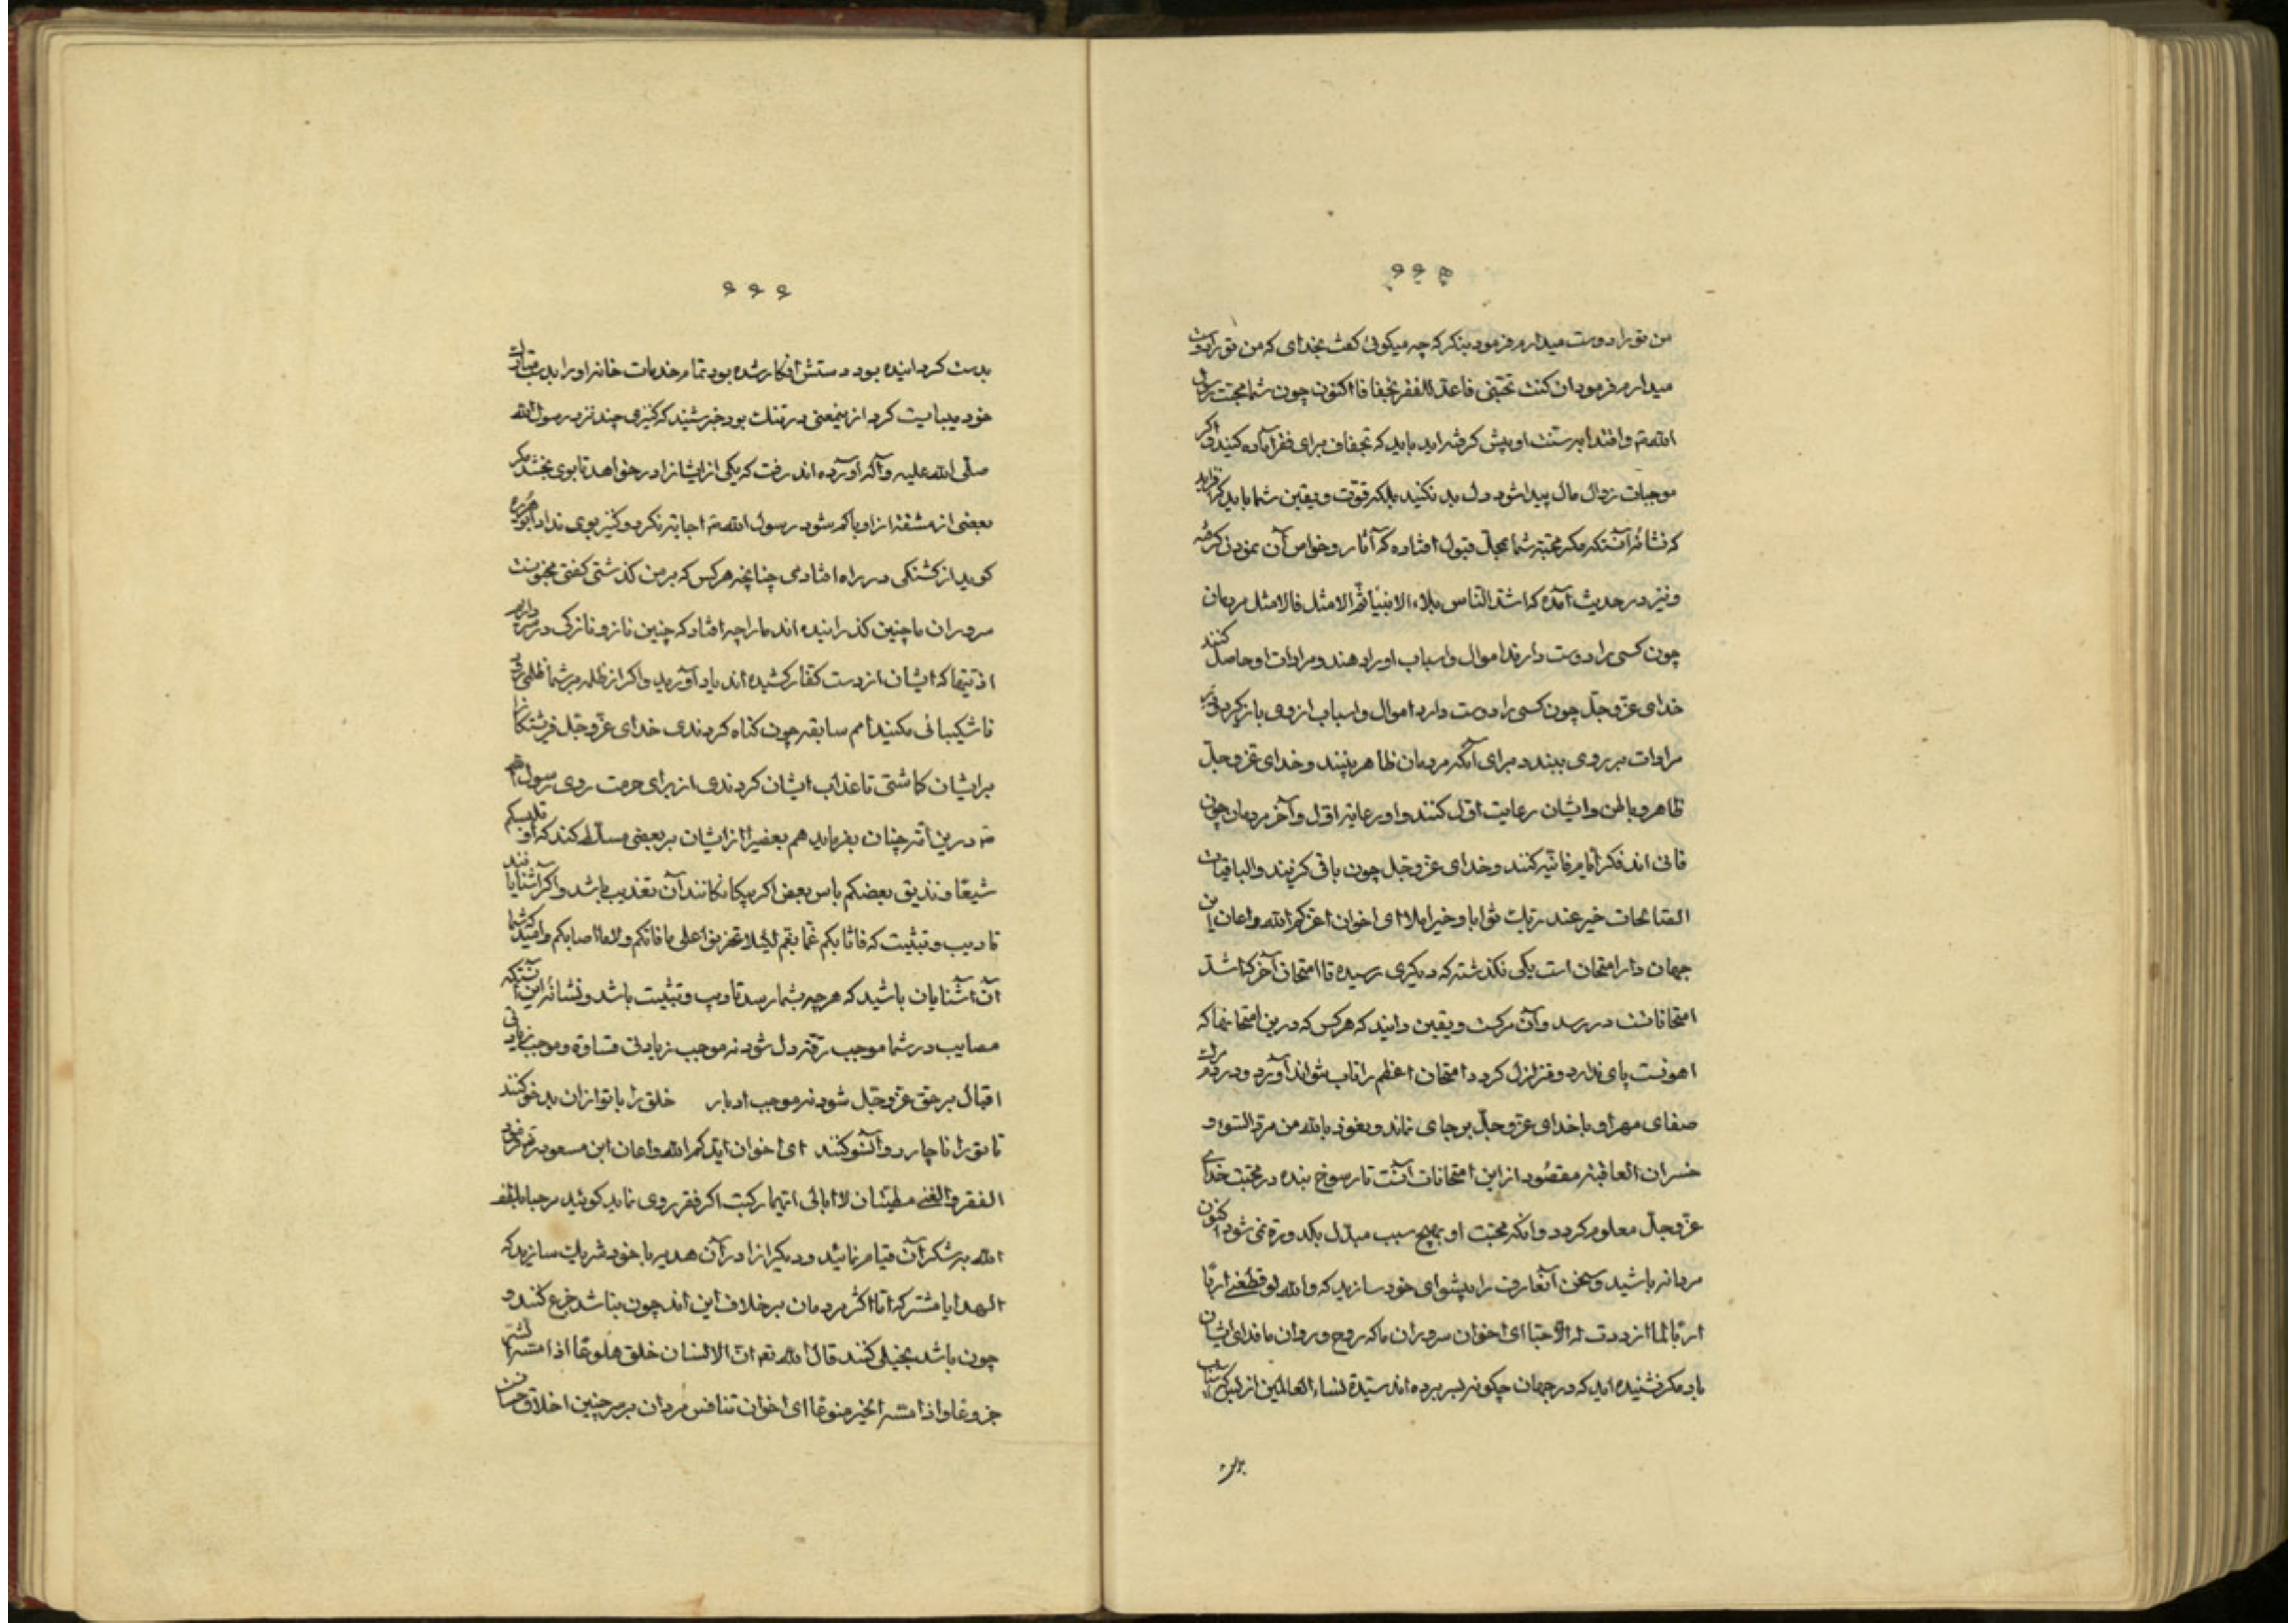 ۶۶۵
من تو را دوست میدارم فرمود بنکر که چه میکوئی کفت بخدای که من تو را دوست
میدارم فرمود ان کنت تحبنی فاعد للفقر تجفافا اکنون چون شما محبت رسول
الله و اقتدا بسنت او پیش کرفته‌اید باید که تجفاف برای فقر آماده کنید و اکر
موجبات زوال مال پیدا شود دل بد نکنید بلکه قوّت و یقین شما باید که افزاید
که نشانهٔ آنستکه مکر محبّت شما بمحلّ قبول افتاده که آثار و خواص آن نمودن کرفته
و نیز در حدیث آمده که اشدّ الناس بلاء الانبیا ثمّ الامثل فالامثل مردمان
چون کسی را دوست دارند اموال و اسباب او را دهند و مرادات او حاصل کنند
خدای عزّ و جلّ چون کسی را دوست دارد اموال و اسباب از وی باز کیرد و در
مرادات بر روی ببندد برای آنکه مردمان ظاهر بینند و خدای عزّ و جلّ
ظاهر و باطن و ایشان رعایت اوّل کنند و او رعایت اوّل و آخر مردمان چون
فانی اند فکر ایام فانیه کنند و خدای عزّ و جلّ چون باقی کزیند و الباقیات
الصالحات خیر عند ربک ثوابا و خیر املا ای اخوان اعزکم الله و اعان این
جهان دار امتحان است یکی نکذشته که دیکری رسیده تا امتحان آخر که اشدّ
امتحاناتست در رسد و آن مرکست و یقین دانید که هر کس که درین امتحانها که
اهونست پای ندارد و متزلزل کردد امتحان اعظم را تاب نتواند آورد و در مرک
صفای مهر او با خدای عزّ و جلّ بر جای نماند و نعوذ بالله من مردّ السّوء و
خسران العاقبه مقصُود از این امتحانات آنست تا رسوخ بنده در محبّت خدای
عزّ و جلّ معلوم کردد و آنکه محبّت او بهیچ سبب مبدّل بکدورت نمی شود اکنون
مردانه باشید و سخن آنعارف را پیشوای خود سازید که و الله لو قطعنی اربًا
اربا لما ازددت له الا حبّا ای اخوان سروران ما که روح و روان ما فدای ایشان
باد مکر نشنیده‌اید که در جهان چکونه بسر برده‌اند سیّدة نساء العالمین از بس که
۶۶۶
بدست کردانیده بود دستش افکار شده بود تمام خدمات خانه او را بدست
خود میبایست کرد ازینمعنی در تنک بود خبر شنید که کنیزی چند نزد رسول الله
صلّی الله علیه و آله آورده‌اند رفت که یکی از ایشانرا درخواهد تا بوی بخشد مکر
بعضی از مشقّة از او با کم شود رسول الله اجابت نکرد و کنیز بوی نداد ابو هریره
کوید از کشنکی در راه افتادمی چنانچه هر کس که بر من کذشتی کفتی مجنونست
سروران ما چنین کذرانیده‌اند ما را چه افتاد که چنین ناز و نازکی در سر داریم
اذیّتها که ایشان از دست کفّار کشیده‌اند یاد آورید و اکر از ظلمه بر شما ظلمی رود
ناشکیبائی مکنید امم سابقه چون کناه کردندی خدای عزّ و جلّ فرشتکانرا
بر ایشان کماشتی تا عذاب ایشان کردندی از برای حرمت روی رسول الله
درین امّت چنان بفرماید هم بعضیرا از ایشان بر بعضی مسلّط کند که او یلبسکم
شیعًا و یذیق بعضکم باس بعض اکر بیکانکانند آن تعذیب باشد و اکر آشنایانند
تادیب و تثبیت که فاثابکم غمّا بغمّ لکیلا تحزنوا علی ما فاتکم و لا ما اصابکم و امّید که شما
آن آشنایان باشید که هر چه بشما رسد تادیب و تثبیت باشد و نشانهٔ این آنستکه
مصایب در شما موجب رقّت دل شود نه موجب زیادتی قساوة و موجب زیادتی
اقبال بر حق عزّ و جلّ شود نه موجب ادبار خلق را با تو از ان بد خو کنند
تا تو را ناچار رو وآنسو کنند ای اخوان ایّدکم الله و اعان ابن مسعود فرمود
الفقر و الغنی مطیّتان لا ابالی ایّهما رکبت اکر فقر روی نماید کوئید مرحبا بلقاء
الله به شکر آن قیام نمائید و دیکرانرا در آن هدیه با خود شریک سازید که
الهدایا مشترکة امّا اکثر مردمان بر خلاف این‌اند چون نباشد جزع کنند و
چون باشد بخیلی کنند قال الله تع انّ الانسان خلق هلوعًا اذا مسّه الشرّ
جزوعًا و اذا مسّه الخیر منوعًا ای اخوان تنافس مردان بر سر چنین اخلاق